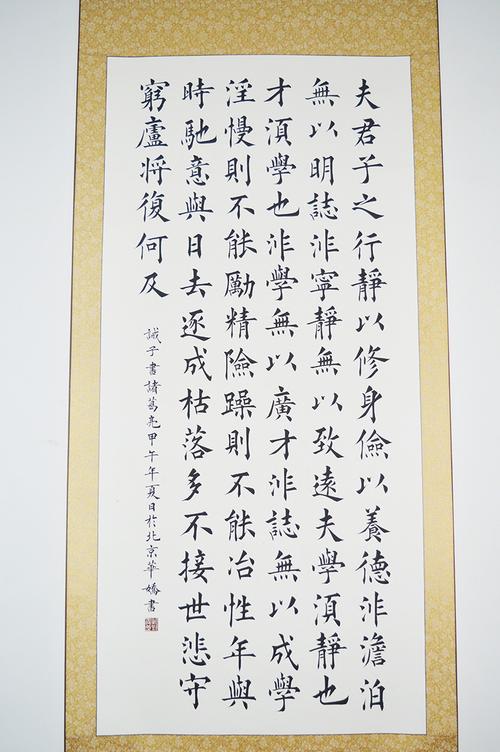 夫君子之行靜以修身儉以養德非澹泊
無以明誌非寧靜無以致遠夫學須靜也
才須學也非學無以廣才非誌無以成學
淫慢則不能勵精險躁則不能冶性年與
時馳意與日去遂成枯落多不接世悲守
窮廬将復何及
誡子書諸葛亮甲午年夏日於北京華嬌書